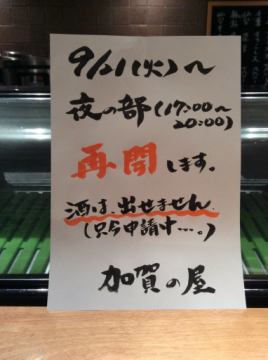 9/21(火)〜
夜の部(17:00〜
20:00)
再開します。
酒は、出せません。
(只今申請中…。)
加賀の屋